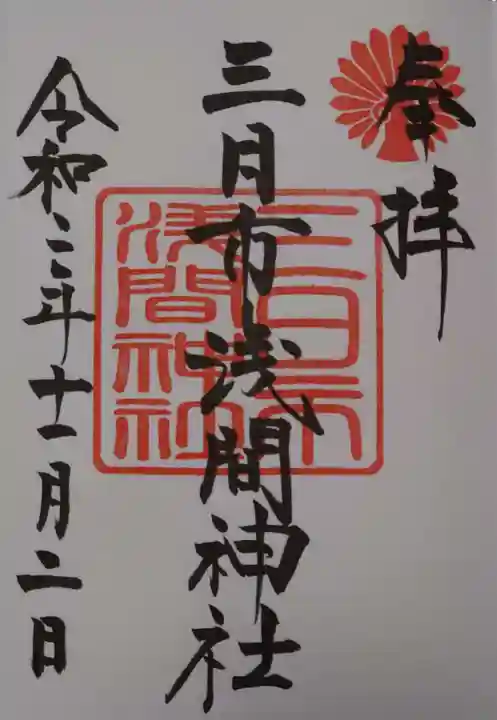 奉拝
三日市浅間神社
三日市
浅間神社
令和二年十一月二日